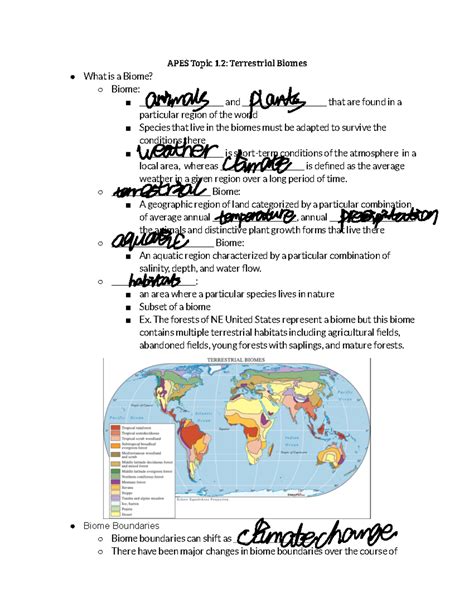 APES Topic 1.2: Terrestrial Biomes
● What is a Biome?
○ Biome:
■ animals and plants that are found in a
particular region of the world
■ Species that live in the biomes must be adapted to survive the
conditions there
■ weather is short-term conditions of the atmosphere in a
local area, whereas climate is defined as the average
weather in a given region over a long period of time.
○ terrestrial Biome:
■ A geographic region of land categorized by a particular combination
of average annual temperature, annual precipitation
the animals and distinctive plant growth forms that live there
○ aquatic Biome:
■ An aquatic region characterized by a particular combination of
salinity, depth, and water flow.
○ habitats:
■ an area where a particular species lives in nature
■ Subset of a biome
■ Ex. The forests of NE United States represent a biome but this biome
contains multiple terrestrial habitats including agricultural fields,
abandoned fields, young forests with saplings, and mature forests.
TERRESTRIAL BIOMES
Tropical rainforest
Tropical scrub woodland
Mediterranean woodland
and shrub
Middle latitude grassland
Prairie
Steppe
Desert
● Biome Boundaries
○ Biome boundaries can shift as climate change
○ There have been major changes in biome boundaries over the course of